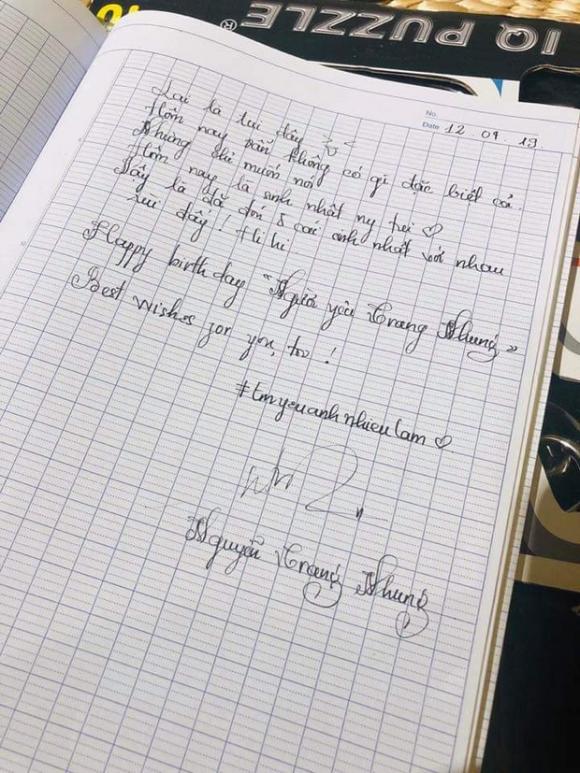 IQ PUZZLE ®
No.
Date 12 09 19
Lại là tui đây >.<
Hôm nay vẫn không có gì đặc biệt cả.
Nhưng chỉ muốn nói
Hôm nay là sinh nhật ny tui ♡
Vậy là đã đón 5 cái sinh nhật với nhau
rùi đấy! Hi hi
Happy birthday "Người yêu Trang Nhung"
Best wishes for you,
#tmyeuanhnhieulam ♡
Nguyễn Trang Nhung